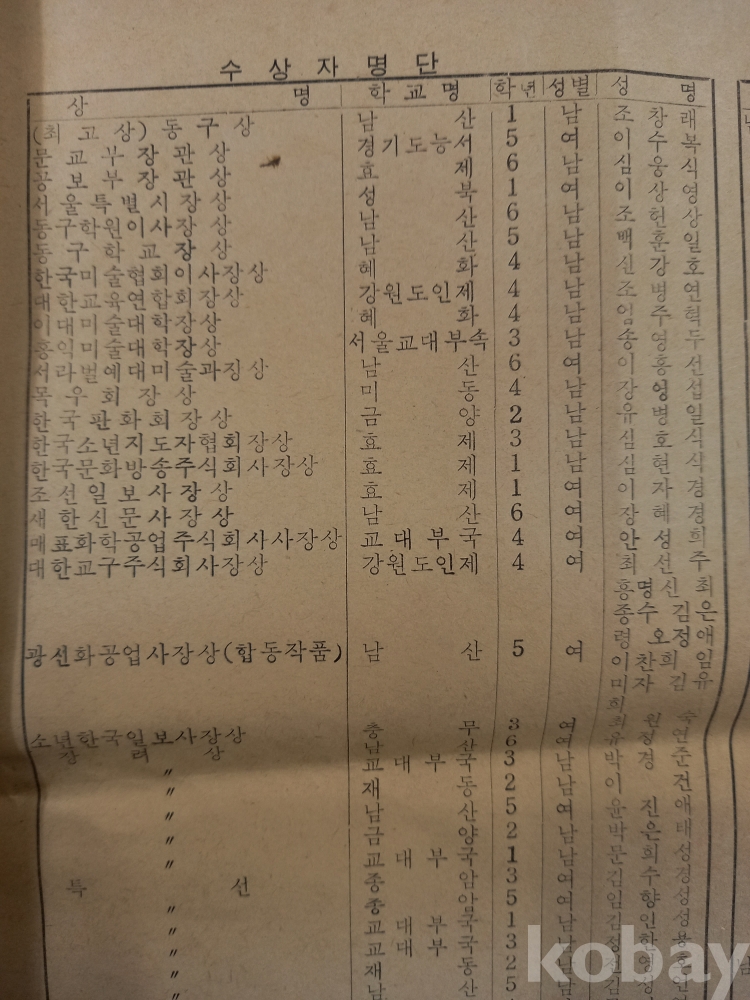 수상자명단
상명 학교명 학년 성별 성명
(최고상)동구상 남산 1 남 조창래
문교부장관상 경기도능서 5 여 이수복
공보부장관상 효제 6 남 심웅식
서울특별시장상 성북 1 여 이상영
동구학원이사장상 남산 6 남 조헌상
동구학교장상 남산 5 남 백훈일
한국미술협회이사장상 혜화 4 남 신강호
대한교육연합회장상 강원도인제 4 남 조병연
이대미술대학장상 혜화 4 남 임주혁
홍익미술대학장상 서울교대부속 3 남 송영두
서라벌예대미술과장상 남산 6 여 이흥선
목우회장상 미동 4 남 장영섭
한국판화회장상 금양 2 남 유병일
한국소년지도자협회장상 효제 3 남 심호식
한국문화방송주식회사장상 효제 1 남 심현
조선일보사장상 효제 1 여 이자경
새한신문사장상 남산 6 여 장혜경
매표화학공업주식회사사장상 교대부국 4 여 안성희
대한교구주식회사장상 강원도인제 4 여 최선주
흥명신 최
종수 김은
령 오정애
광선화공업사장상(合동作품) 남산 5 여 이찬희 임
미자 김유
희
소년한국일보사장상 충무 3 여 최원숙
장려상 남산 6 여 유정연
〃 교대부국 3 남 박경준
〃 재동 2 남 이건
〃 남산 5 여 윤진애
〃 금양 2 남 박은태
〃 교대부국 1 남 문희성
특선 종암 3 여 김수경
〃 종암 5 여 임향성
〃 교대부국 1 남 김인성
〃 교대부국 3 남
〃 재동 2
〃 남산 5
kobay